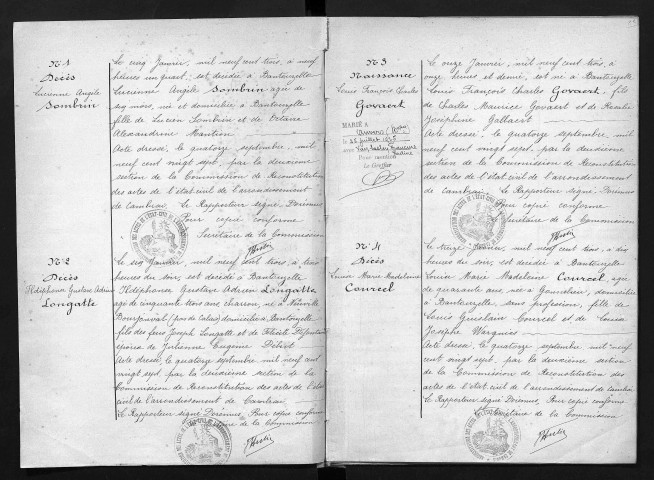 N° 1
Décès
Lucienne Angèle
Sombrin
Le cinq Janvier, mil neuf cent trois, à neuf
heures un quart, est décédée à Banteuzelle
Lucienne Angèle Sombrin âgée de
six mois, née et domiciliée à Banteuzelle
fille de Lucien Sombrin et de Octavie
Alexandrine
Acte dressé, le quatorze septembre, mil
neuf cent vingt sept, par la deuxième
section de la Commission de Reconstitution
des actes de l'état civil de l'arrondissement
de Cambrai. Le Rapporteur signé: Doisnus
Pour copie conforme
Secrétaire de la Commission
N° 2
Décès
Ildéphonse Gustave Adrien
Longatte
Le six Janvier, mil neuf cent trois, à
heures du soir, est décédé à Banteuzelle
Ildéphonse Gustave Adrien Longatte
âgé de cinquante trois ans charron, né à Neuville
Bourjonval (pas de Calais) domicilié à Banteuzelle
fils des feus Joseph Longatte et de Félicité
époux de Julienne Eugénie
Acte dressé, le quatorze septembre mil neuf cent
vingt sept, par la deuxième section de la
Commission de Reconstitution des actes de l'état
civil de l'arrondissement de Cambrai
Le Rapporteur signé Doisnus, Pour copie conforme
de la Commission
N° 3
Naissance
Louis François Charles
Govaert
MARIÉ A
le juillet
avec
Pour mention
Le Greffier
Le onze Janvier, mil neuf cent trois, à
onze heures et demie, est né à Banteuzelle
Louis François Charles Govaert, fils
de Charles Maurice Govaert et de Rosalie
Joséphine Gallaert
Acte dressé, le quatorze septembre, mil
neuf cent vingt sept, par la deuxième
section de la Commission de Reconstitution
des actes de l'état civil de l'arrondissement
de Cambrai. Le Rapporteur signé: Doisnus
Pour copie conforme
Secrétaire de la Commission
N° 4
Décès
Louise Marie Madeleine
Courcel
Le treize Janvier, mil neuf cent trois, à dix
heures du soir, est décédée à Banteuzelle
Louise Marie Madeleine Courcel, âgée
de quarante ans née à Gonnelieu, domiciliée
à Banteuzelle, sans profession, fille de
Louis Ghislain Courcel et de Louise
Josèphe Warguies
Acte dressé, le quatorze septembre, mil neuf
cent vingt sept, par la deuxième section
de la Commission de Reconstitution des
actes de l'état civil de l'arrondissement de Cambrai
Le Rapporteur signé Doisnus, Pour copie conforme
Secrétaire de la Commission